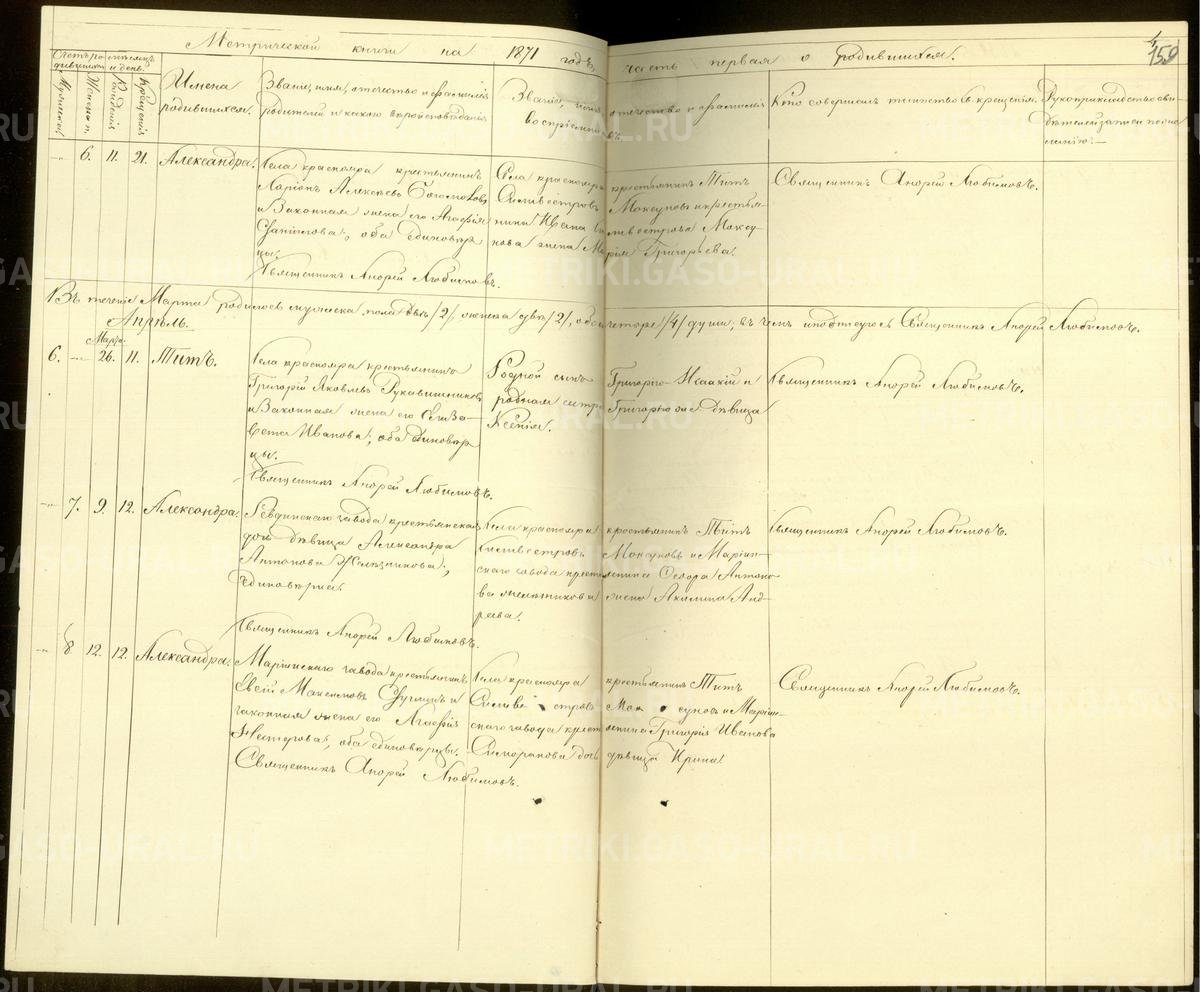 Метрической книги на 1871 годъ, часть первая о родившихся.
159
Счетъ родившихся
Мужеска
Женска п.
Рожденія
Крещенія
Имена
родившихся.
Званіе, имя, отчество и фамилія
родителей и какого вѣроисповѣданія
Званіе, имя, отчество и фамилія
воспріемниковъ
Кто совершалъ таинство крещенія.
Рукоприкладство сви-
дѣтелей записи по же-
ланію.
6. 11. 21. Александра.
Села краснояра крестьянинъ
Ларіонъ Алексѣевъ
и Законная жена его Агафія
Данилова, оба единовѣр
цы.
Священникъ Андрей Любимовъ.
Села краснояра крестьянинъ Титъ
Силивестровъ Моксуновъ и крестья-
нина Ивана Силивестрова Моксу-
нова жена Марія Григорьева.
Священникъ Андрей Любимовъ.
Въ теченіе Марта родилось мужеска пола два /2/, женска два /2/, обоего четыре /4/ души, въ чемъ и подписуюсь Священникъ Андрей Любимовъ.
Апрѣль.
Марта
6. 26. 11. Титъ.
Села краснояра крестьянинъ
Григорій Яковлевъ Рукавишниковъ
и Законная жена его Елиза-
вета Иванова, оба единовѣр
цы.
Священникъ Андрей Любимовъ.
Родной сынъ Григорія Исаакій и
родная сестра Григорію ... дѣвица
Ксенія.
Священникъ Андрей Любимовъ.
7. 9. 12. Александра.
Ревдинскаго завода крестьянская
дочь дѣвица Александра
Антонова Желѣзникова,
единовѣрка.
Священникъ Андрей Любимовъ.
Села краснояра крестьянинъ Титъ
Силивестровъ Моксуновъ и Маріин-
скаго завода крестьянина Ѳедора Антоно-
ва мельникова жена Акилина Анд-
реева.
Священникъ Андрей Любимовъ.
8. 12. 12. Александра.
Маріинскаго завода крестьянинъ
Евсій Максимовъ и
законная жена его Агафія
Нестерова, оба единовѣрцы.
Священникъ Андрей Любимовъ.
Села краснояра крестьянинъ Титъ
Силивестровъ Моксуновъ и Маріин-
скаго завода крестьянина Григорія Иванова
дочь дѣвица Ирина.
Священникъ Андрей Любимовъ.
METRIKI.GASO-URAL.RU